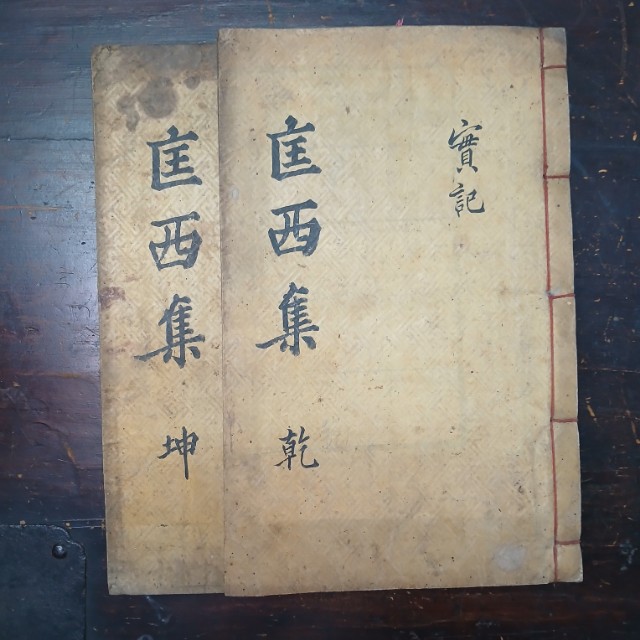 實記
匡西集 乾
匡西集 坤